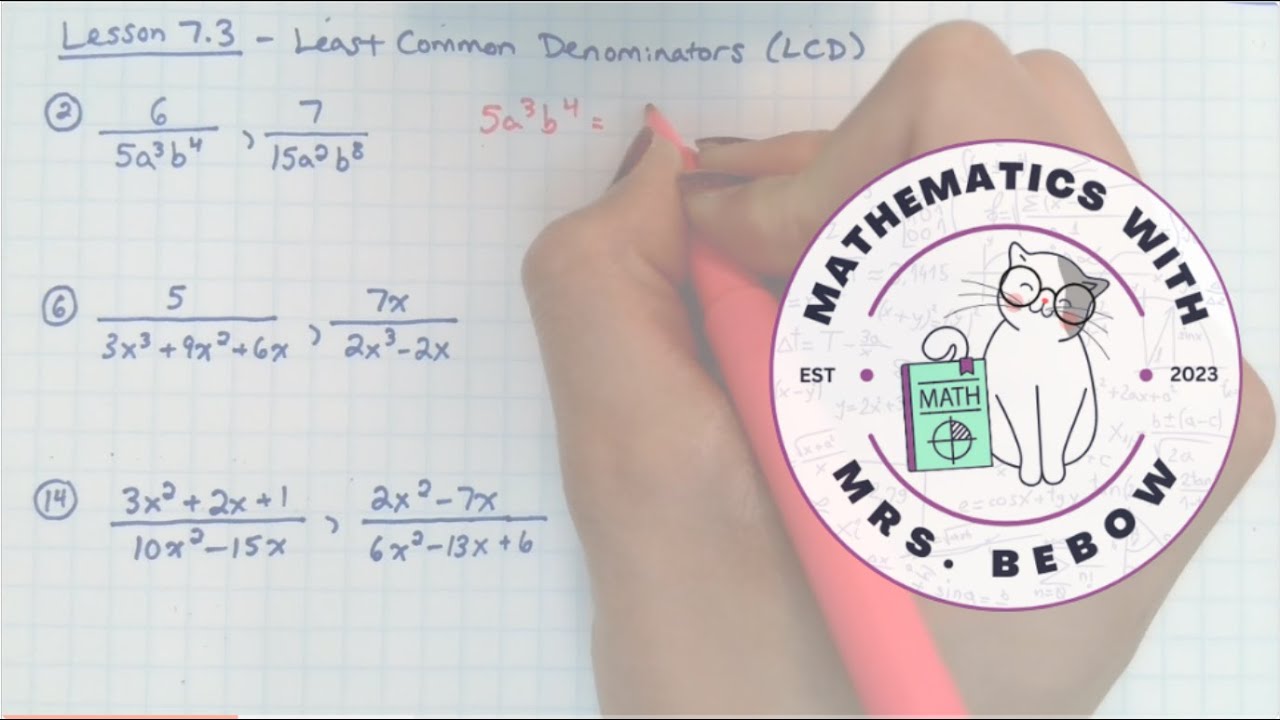 Lesson 7.3 - Least Common Denominators (LCD)
② 6/(5a³b⁴) , 7/(15a²b⁸)
5a³b⁴ =
⑥ 5/(3x³+9x²+6x) , 7x/(2x³-2x)
⑭ (3x²+2x+1)/(10x²-15x) , (2x²-7x)/(6x²-13x+6)
MATHEMATICS WITH
EST 2023
MATH
MRS. BEBOW